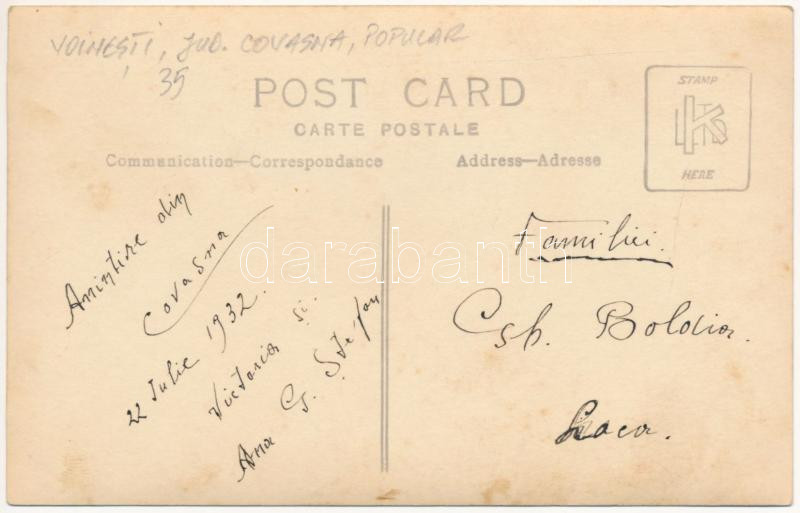 VOINEȘTI, JUD. COVASNA, POPULAR
35
POST CARD
CARTE POSTALE
Communication—Correspondance
Address—Adresse
STAMP
HERE
Amintire din
Covasna
22 Iulie 1932.
Victoria și
Ana G. Ștefan
Familiei
Csh. Boldia.
darabanth